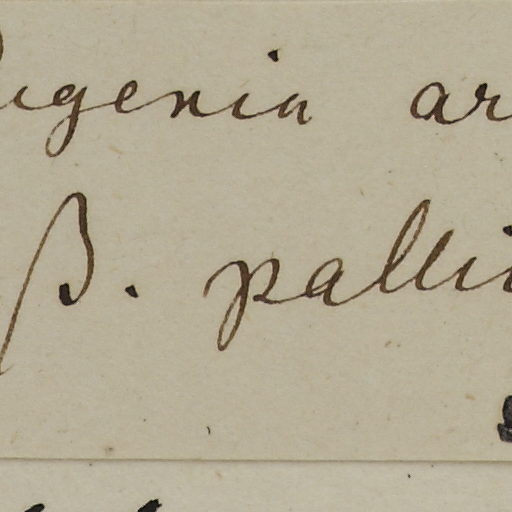 Eugenia ar
β. palli